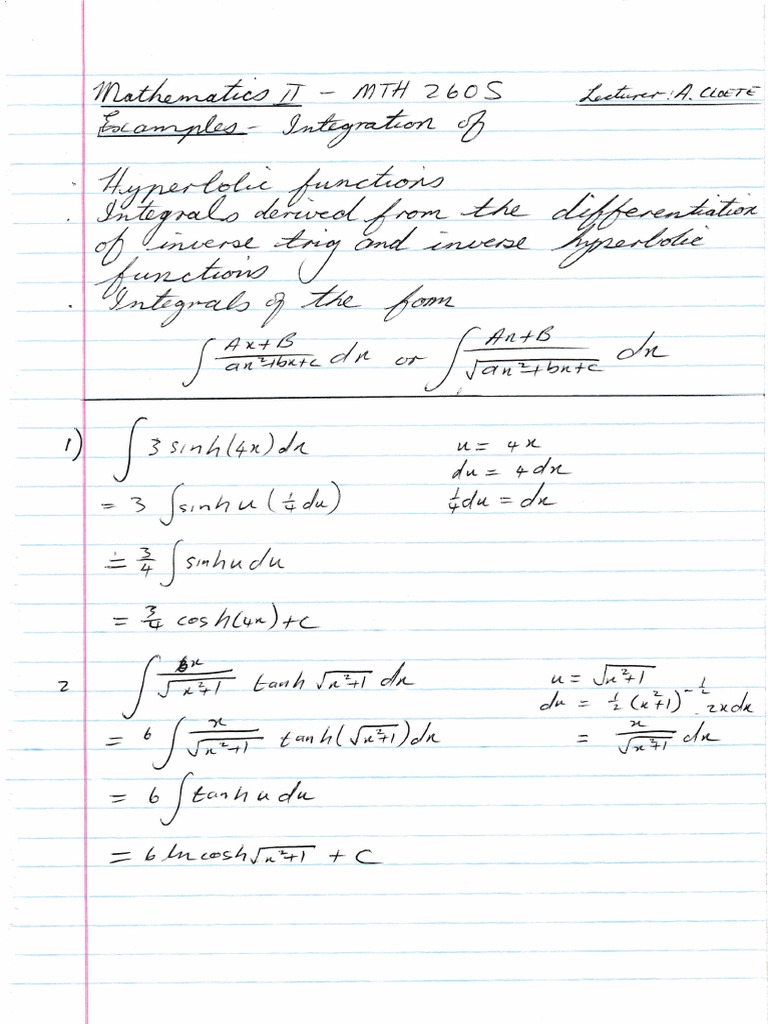 Mathematics II - MTH 260S Lecturer: A. CLOETE
Examples - Integration of
Hyperbolic functions
. Integrals derived from the differentiation
of inverse trig and inverse hyperbolic
functions
. Integrals of the form
∫ (Ax+B)/(ax²+bx+c) dx or ∫ (Ax+B)/√(ax²+bx+c) dx
1) ∫ 3 sinh(4x) dx u = 4x
du = 4dx
= 3 ∫ sinh u (¼ du) ¼ du = dx
= ¾ ∫ sinh u du
= ¾ cosh(4x) + c
2 ∫ 6x/√(x²+1) tanh √(x²+1) dx u = √(x²+1)
du = ½ (x²+1)^(-½) . 2x dx
= 6 ∫ x/√(x²+1) tanh(√(x²+1)) dx = x/√(x²+1) dx
= 6 ∫ tanh u du
= 6 ln cosh √(x²+1) + C